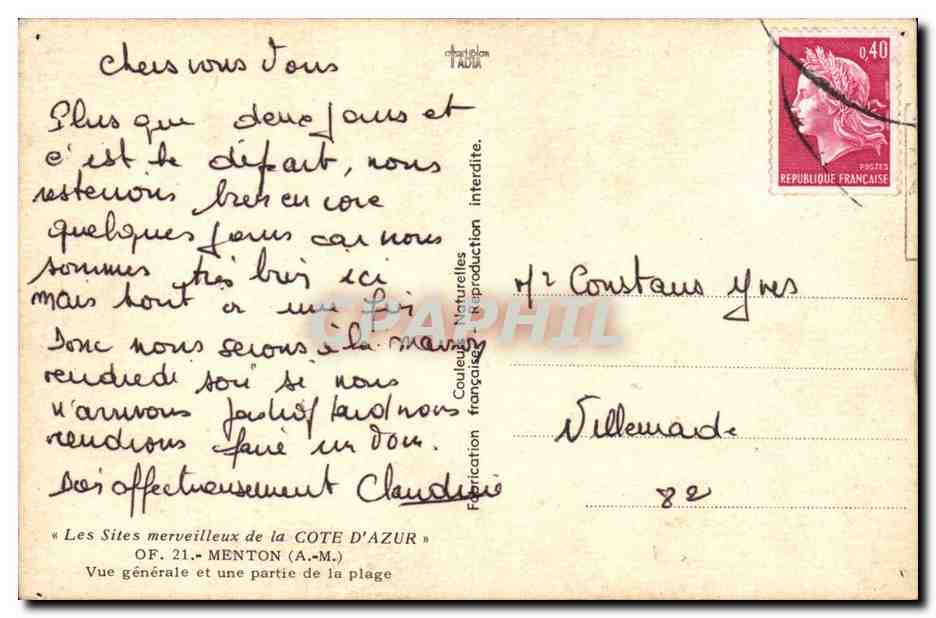 chers vous Tous
Plus que deux jours et
c'est le départ, nous
resterions bien encore
quelques jours car nous
sommes très bien ici
mais tout a une fin
Donc nous serons à la maison
vendredi soir si nous
n'arrivons pas trop tard nous
viendrions faire un
affectueusement Claudine
« Les Sites merveilleux de la COTE D'AZUR »
OF. 21.- MENTON (A.-M.)
Vue générale et une partie de la plage
Couleurs Naturelles
Fabrication française - Reproduction interdite.
CPAPHIL
0,40
POSTES
REPUBLIQUE FRANÇAISE
Mr Constans Yves
Villemade
82